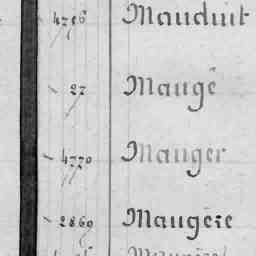 4756 Mauduit
27 Maugé
4770 Mauger
2869 Maugère